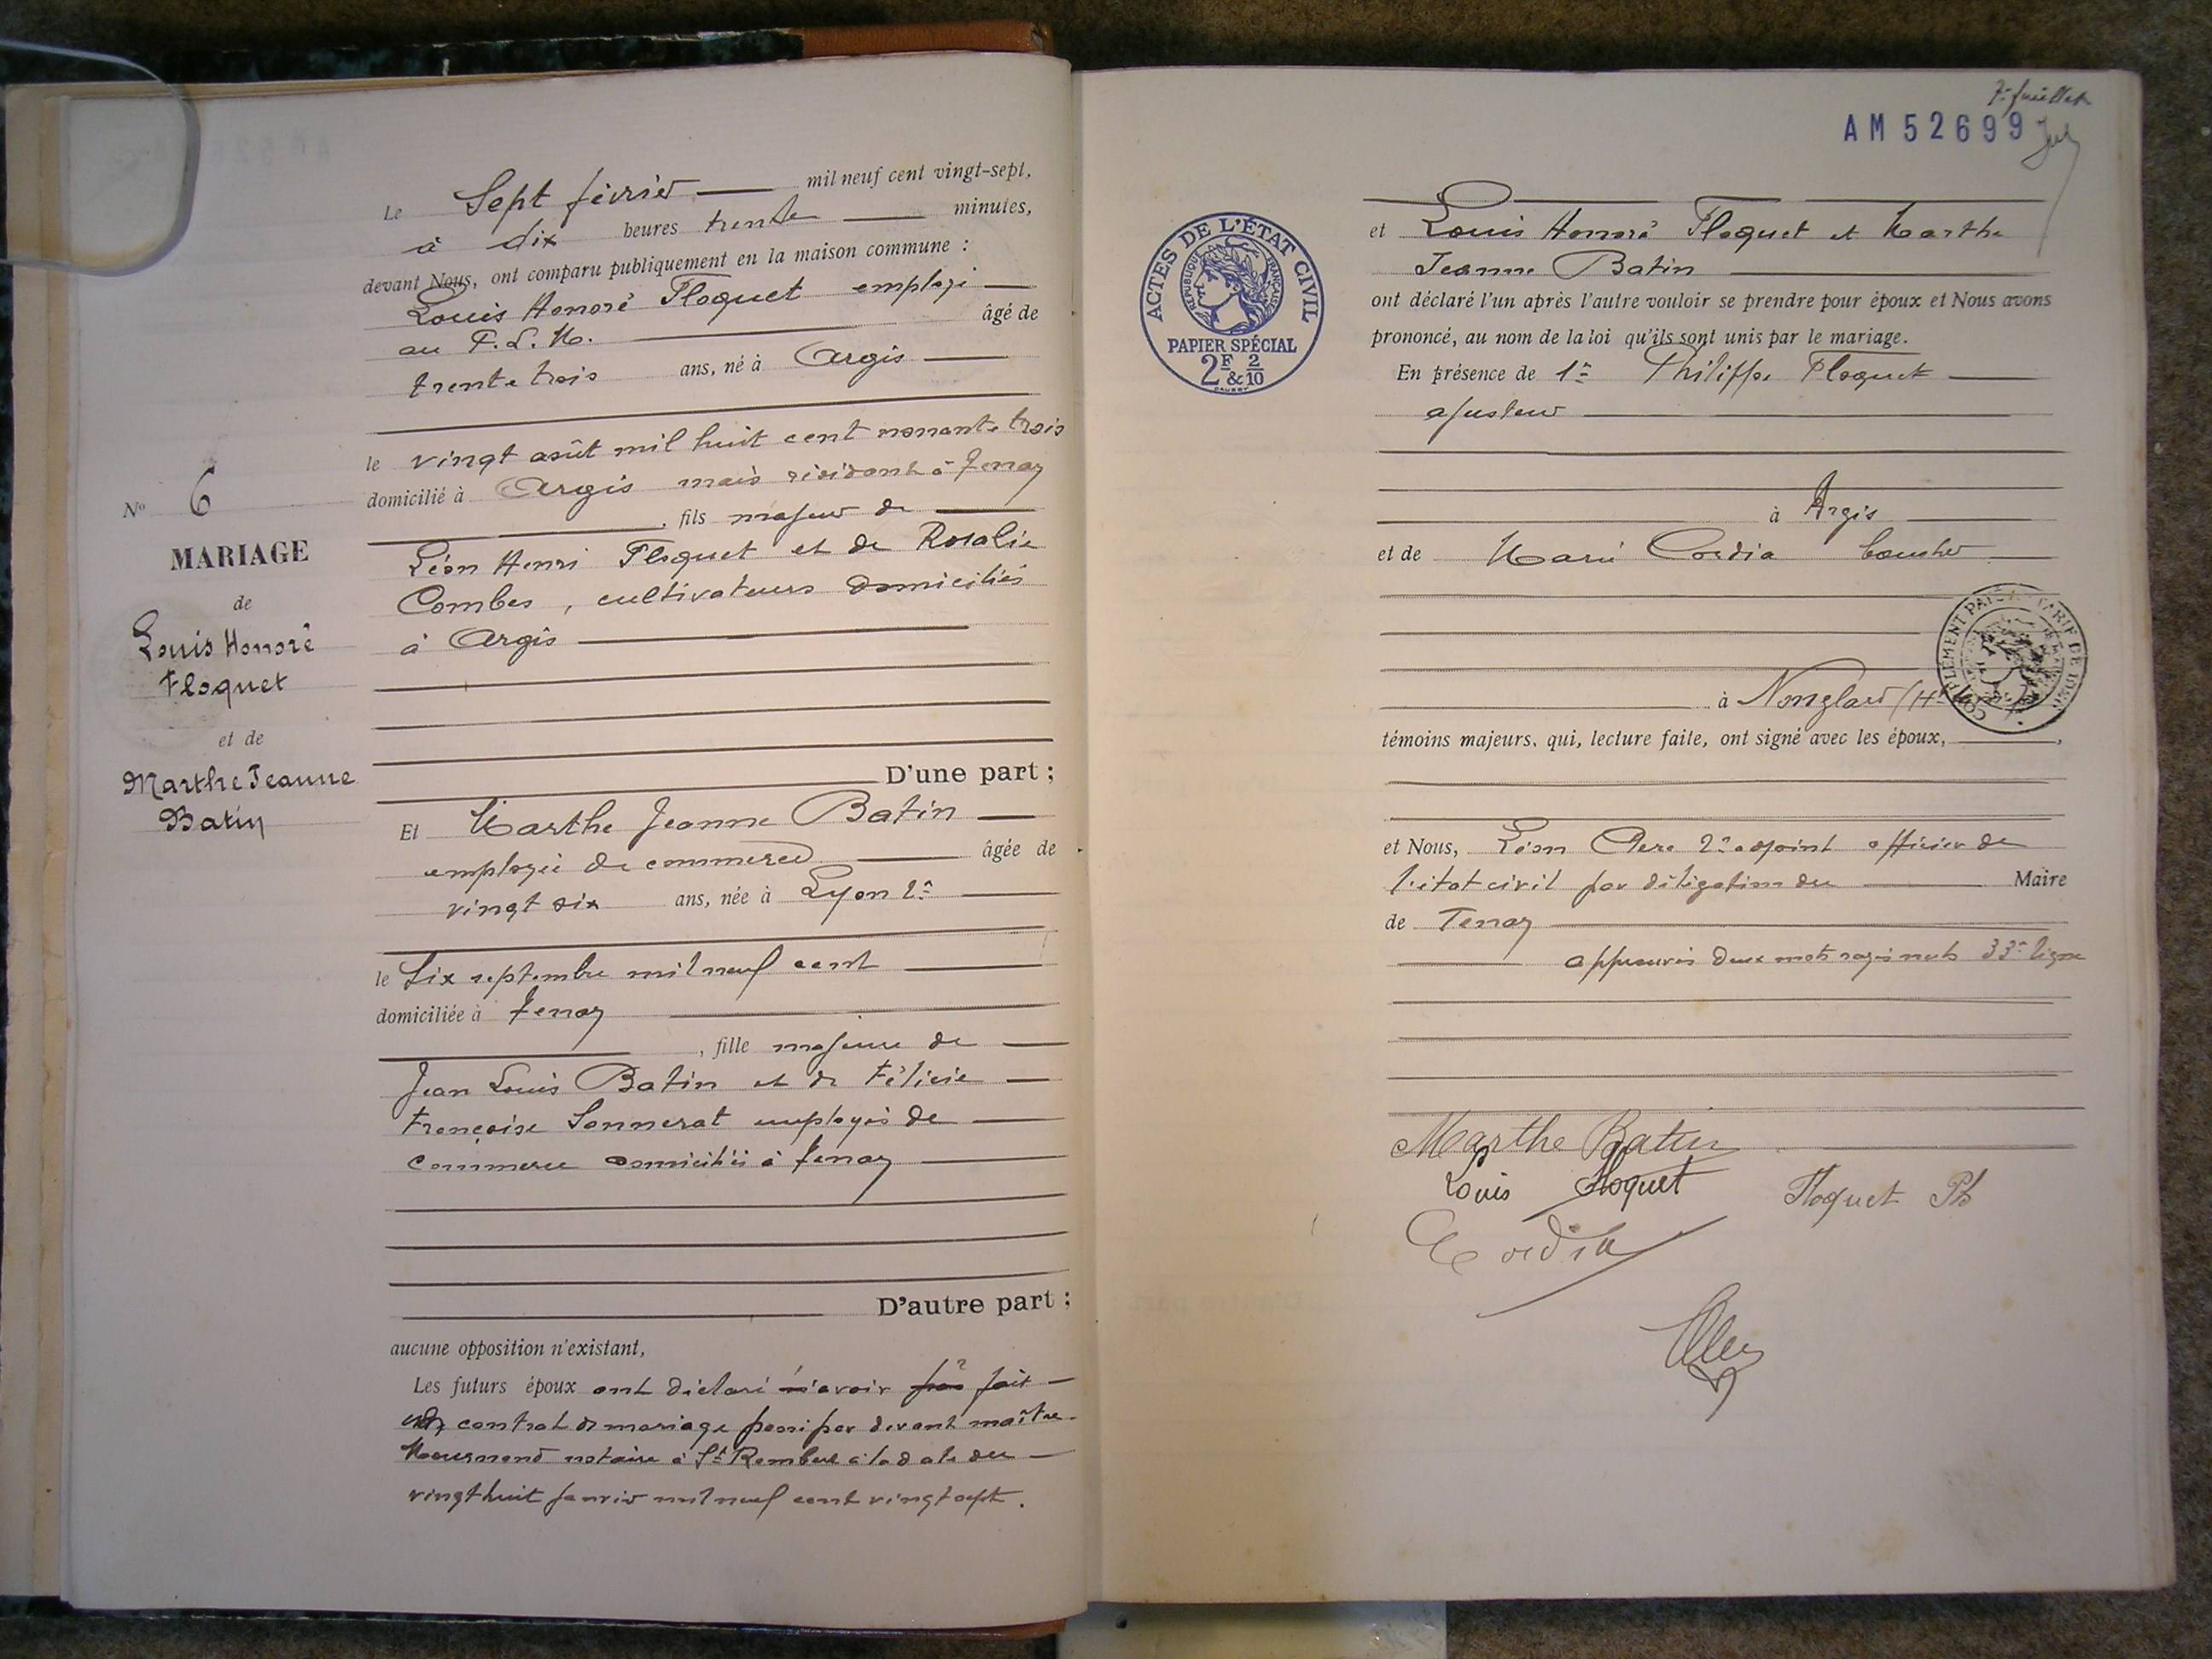 Le Sept février mil neuf cent vingt-sept,
à dix heures trente minutes,
devant Nous, ont comparu publiquement en la maison commune :
Louis Honoré Floquet employé
au P. L. M. âgé de
trente trois ans, né à Argis
le vingt août mil huit cent nonante trois
domicilié à Argis mais résidant à Tenay
, fils majeur de
Léon Henri Floquet et de Rosalie
Combes, cultivateurs domiciliés
à Argis
D'une part ;
No 6
MARIAGE
de
Louis Honoré
Floquet
et de
Marthe Jeanne
Batin
Et Marthe Jeanne Batin
employée de commerce âgée de
vingt six ans, née à Lyon 2e
le Six septembre mil neuf cent
domiciliée à Tenay
, fille majeure de
Jean Louis Batin et de Félicie
Françoise Sonnerat employés de
commerce domiciliés à Tenay
D'autre part ;
aucune opposition n'existant,
Les futurs époux ont déclaré avoir fait
contrat de mariage par devant maître
notaire à St Rambert à la date du
vingt huit janvier mil neuf cent vingt sept.
7e feuillet
AM 52699
ACTES DE L'ÉTAT CIVIL
RÉPUBLIQUE FRANÇAISE
PAPIER SPÉCIAL
2F & 2/10
et Louis Honoré Floquet et Marthe
Jeanne Batin
ont déclaré l'un après l'autre vouloir se prendre pour époux et Nous avons
prononcé, au nom de la loi qu'ils sont unis par le mariage.
En présence de 1e Philippe Floquet
ajusteur
à Argis
et de Marie Cordia
à Nonglard (Hte
témoins majeurs, qui, lecture faite, ont signé avec les époux,
et Nous, Léon 2e adjoint officier de
l'état civil par délégation du Maire
de Tenay
approuvés deux mots rayés nuls 33e ligne
Marthe Batin
Louis Floquet Floquet Ph
Cordia